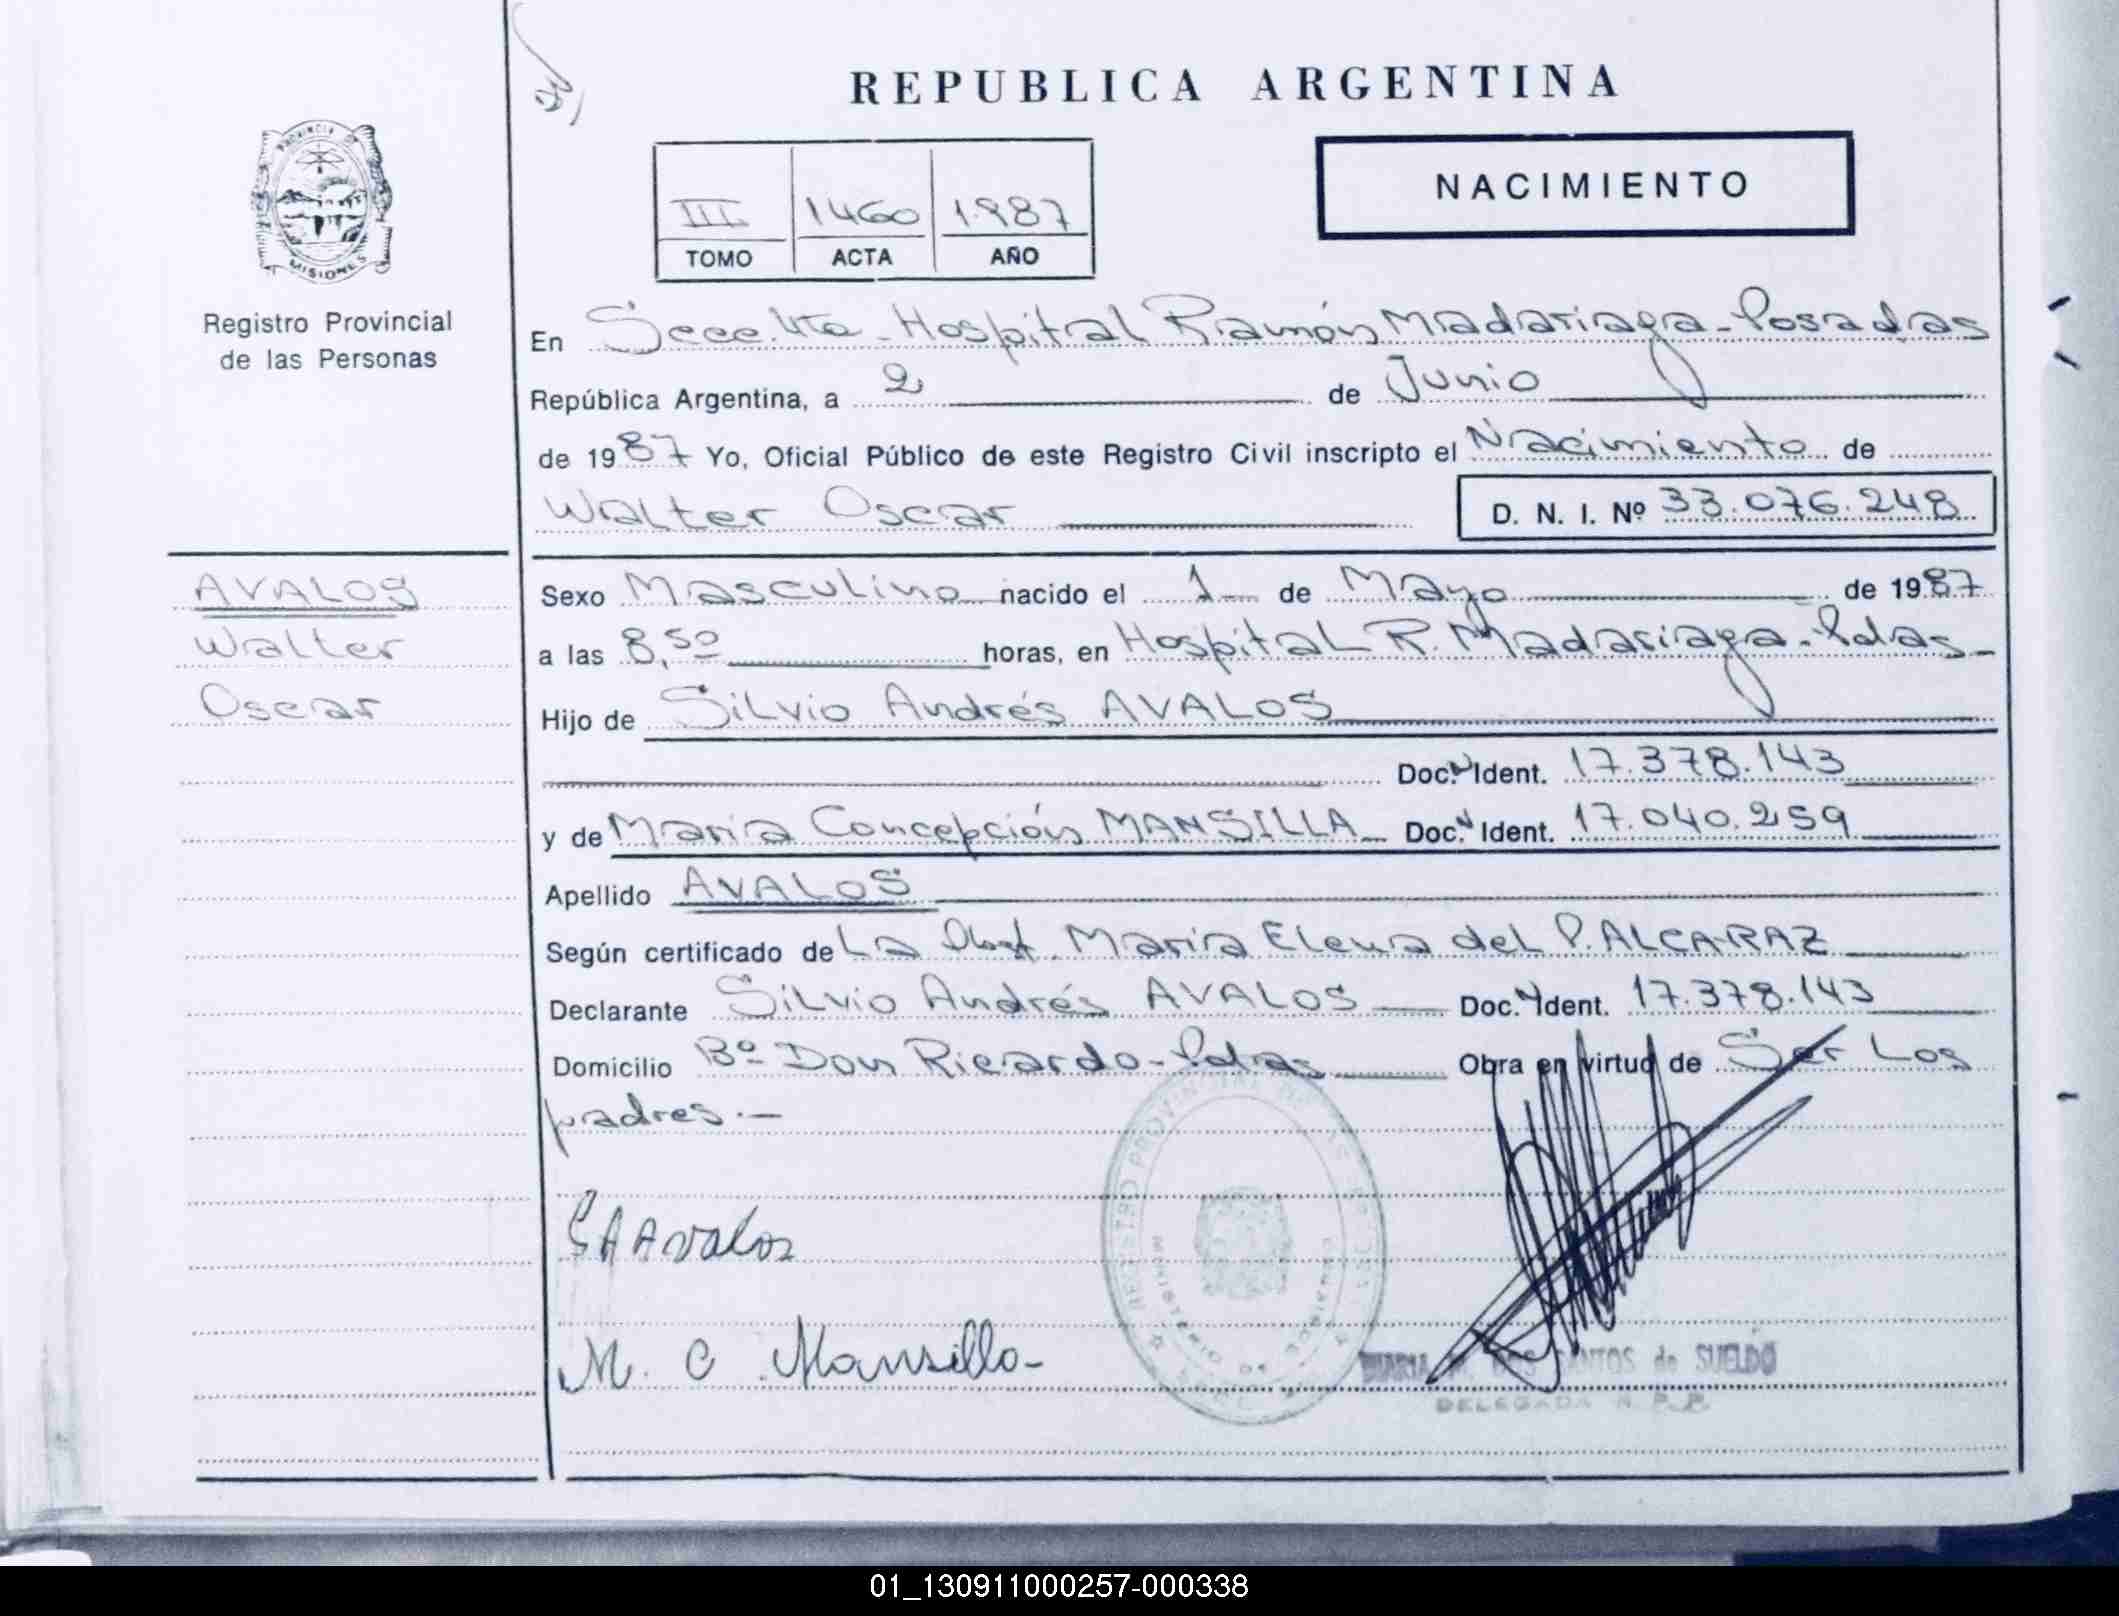 REPUBLICA ARGENTINA
PROVINCIA DE
MISIONES
Registro Provincial
de las Personas
III 1460 1.987
TOMO ACTA AÑO
NACIMIENTO
En Secc. 4ta - Hospital Ramón Madariaga - Posadas
República Argentina, a 2 de Junio
de 1987 Yo, Oficial Público de este Registro Civil inscripto el Nacimiento de
Walter Oscar D. N. I. Nº 33.076.248
AVALOS
Walter
Oscar
Sexo Masculino nacido el 1 de Mayo de 1987
a las 8,50 horas, en Hospital R. Madariaga - Pdas
Hijo de Silvio Andrés AVALOS
Doc. N Ident. 17.378.143
y de María Concepción MANSILLA Doc. N Ident. 17.040.259
Apellido AVALOS
Según certificado de La Obst. María Elena del P. ALCARAZ
Declarante Silvio Andrés AVALOS Doc. N Ident. 17.378.143
Domicilio Bº Don Ricardo - Pdas Obra en virtud de Ser Los
padres.-
S A Avalos
M. C Mansilla
REGISTRO PROVINCIAL DE LAS PERSONAS
MINISTERIO DE
MARIA M. DOS SANTOS de SUELDO
DELEGADA R. P. P.
01_130911000257-000338